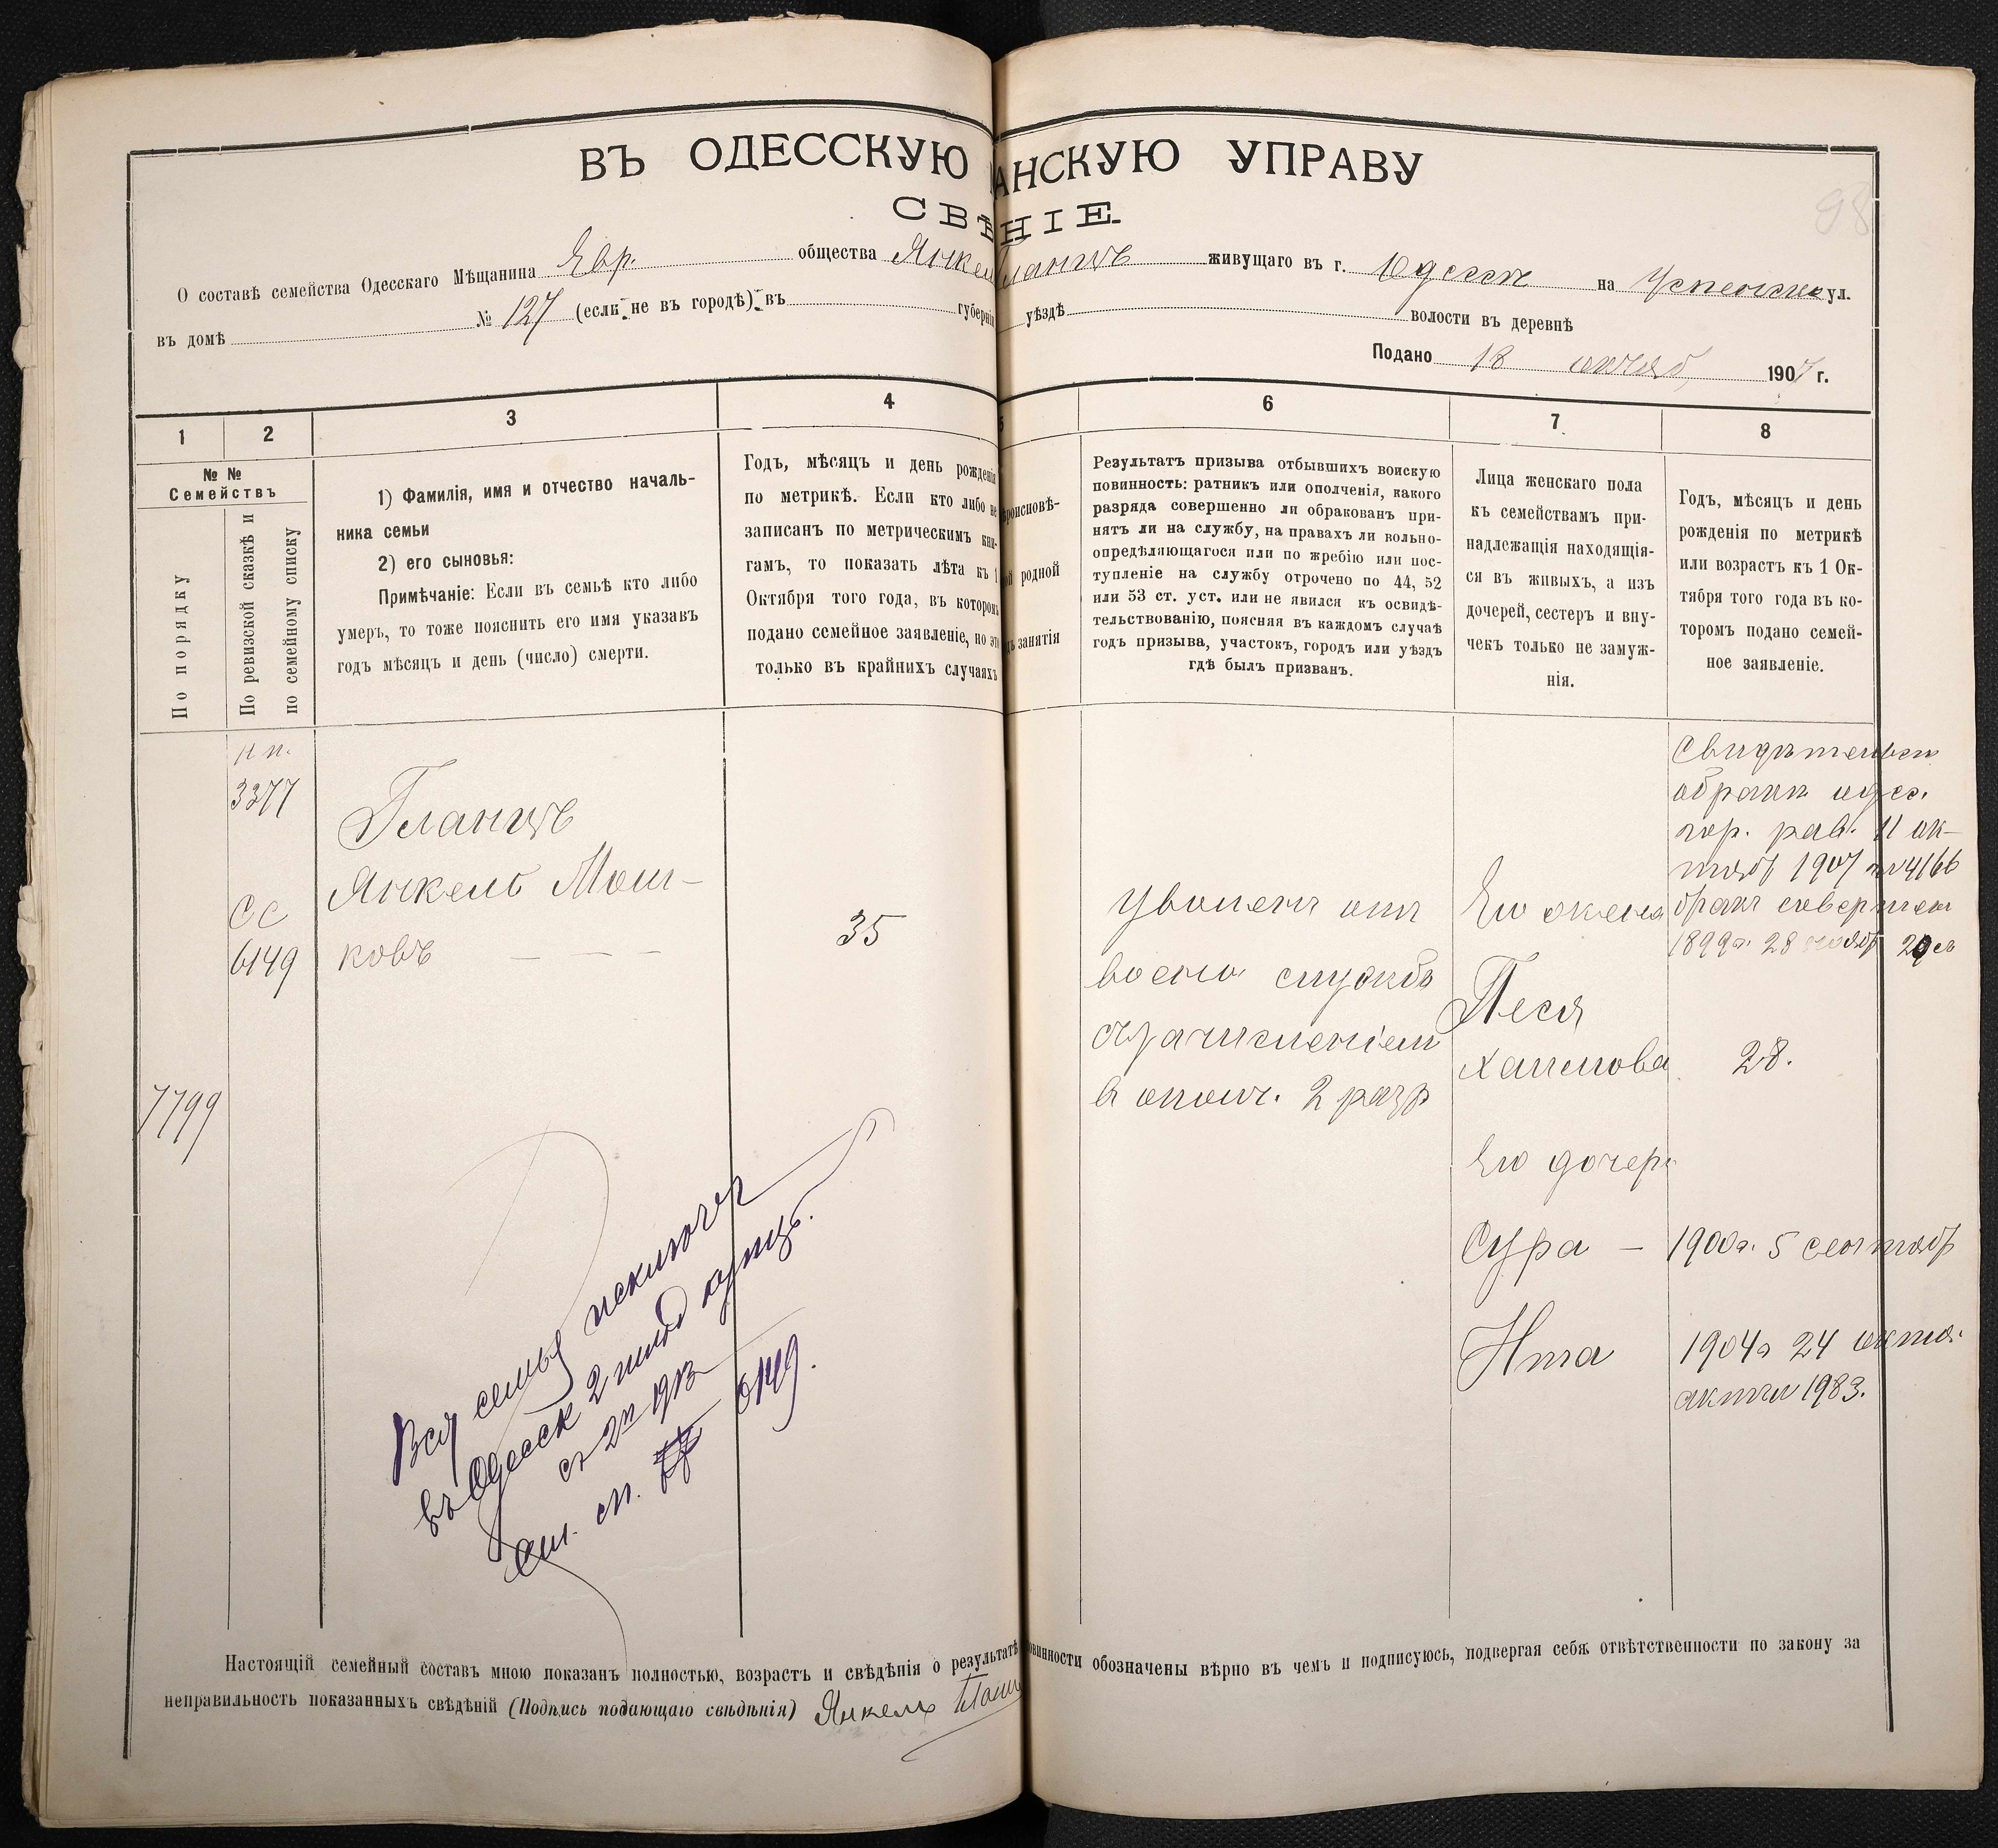 ВЪ ОДЕССКУЮ АНСКУЮ УПРАВУ
СВѢ НІЕ.
О составѣ семейства Одесскаго Мѣщанина Евр. общества Янкель Гланцъ живущаго въ г. Одессѣ на ул.
въ домѣ № 127 (если не въ городѣ) въ губерніи уѣздѣ волости въ деревнѣ
Подано 18 октяб 1907 г.
1 2 3 4 5 6 7 8
№ №
Семействъ
По порядку
По ревизской сказкѣ и
по семейному списку
1) Фамилія, имя и отчество началь-
ника семьи
2) его сыновья:
Примѣчаніе: Если въ семьѣ кто либо
умеръ, то тоже пояснить его имя указавъ
годъ мѣсяцъ и день (число) смерти.
Годъ, мѣсяцъ и день рожденія
по метрикѣ. Если кто либо не
записанъ по метрическимъ кни-
гамъ, то показать лѣта къ 1
Октября того года, въ которомъ
подано семейное заявленіе, но это
только въ крайнихъ случаяхъ
роисповѣ-
й родной
ъ занятія
Результатъ призыва отбывшихъ воискую
повинность: ратникъ или ополченія, какого
разряда совершенно ли обракованъ при-
нятъ ли на службу, на правахъ ли вольно-
опредѣляющагося или по жребію или пос-
тупленіе на службу отрочено по 44, 52
или 53 ст. уст. или не явился къ освидѣ-
тельствованію, поясняя въ каждомъ случаѣ
годъ призыва, участокъ, городъ или уѣздъ
гдѣ былъ призванъ.
Лица женскаго пола
къ семействамъ при-
надлежащія находящія-
ся въ живыхъ, а изъ
дочерей, сестеръ и вну-
чекъ только не замуж-
нія.
Годъ, мѣсяцъ и день
рожденія по метрикѣ
или возрастъ къ 1 Ок-
тября того года въ ко-
торомъ подано семей-
ное заявленіе.
7799
3377
СС
6149
Гланцъ
Янкель Мош-
ковъ — — —
35
Уволенъ отъ
воено службѣ
въ ополч. 2 разр
Его жена
Песя
Хаимова
Его дочери
Сура —
Ита
обракѣ одес.
гор. рав. 11 ок-
тяб 1907 № 4166
бракъ совершен
1899г. 28 ноябр
28.
1900г. 5 сентяб
1904г 24 октя.
актъ 1983.
Вся семья исключ
въ Одесск 2 гильд купцы.
съ 2п 1913
сп. 6149.
Настоящій семейный составъ мною показанъ полностью, возрастъ и свѣдѣнія о результатѣ овинности обозначены вѣрно въ чемъ и подписуюсь, подвергая себя отвѣтственности по закону за
неправильность показанныхъ свѣдѣній (Подпись подающаго свѣдѣнія) Янкель